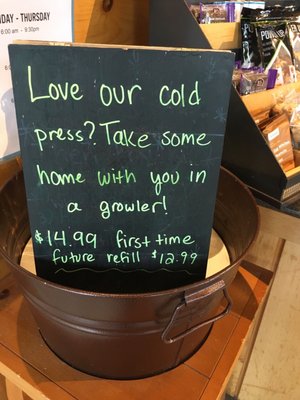 DAY - THURSDAY
6:00 am - 9:30pm
Love our cold
press? Take some
home with you in
a growler!
$14.99 first time
future refill $12.99